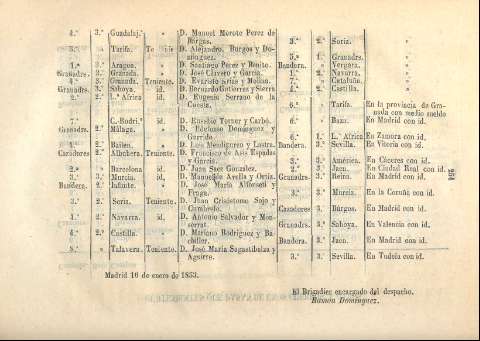 4.ª 3.º Guadalaj.ª » D. Manuel Morote Perez de
Bargas. 3.ª 2.º Soria. »
3.ª » Tarifa. D. Alejandro, Burgos y Do-
minguez. 5.ª 1.º Granadrs. »
1.ª 3.º Aragon. » D. Santiago Perez y Benito. Bandera. Vergara. »
Granadrs. 3.º Granada. » D. José Clavero y Garcia. 1.ª 2.º Navarra. »
4.ª Granada. Teniente. D. Evaristo Arias y Molina. Cataluña. »
Granadrs. 3.º Saboya. id. D. Bernardo Gutierrez y Sierra 4.ª 2.º Castilla. »
2.ª 2.º L.ª Africa id. D. Eugenio Serrano de la
Cuesta. 6.ª » Tarifa. En la provincia de Gra-
nada con medio sueldo
7.ª C.-Rodri.º id. D. Eusebio Torner y Carbó. 6.ª » Baza. En Madrid con id.
Granadrs. 2.º Málaga. » D. Ildefonso Dominguez y
Garrido. 6.ª 1.º L.ª Africa En Zamora con id.
1.ª 2.º Bailén. » D. Luis Mendicuren y Lastra. Bandera. 3.º Sevilla. En Vitoria con id.
Cazadores 2.º Albuhera. Teniente. D. Francisco de Asis Espadas
y Garcia. 3.ª 3.º América. En Cáceres con id.
2.ª » Barcelona id. D. Juan Saez Gonzalez. 2.º Jaen. En Ciudad Real con id.
3.ª 3.º Murcia. id. D. Manuel de Avella y Oria. Granadrs. 3.º Reina. En Madrid con id.
Bandera. 2.º Infante. » D. José Maria Alfoseti y
Fraga. 3.ª 3.º Murcia. En la Coruña con id.
3.ª 2.º Soria. Teniente. D. Juan Crisóstomo Sojo y
Cambeolo. Cazadores 3.º Búrgos. En Madrid con id.
1.ª 2.º Navarra. id. D. Antonio Salvador y Mon-
serrat. Granadrs. 3.º Saboya. En Valencia con id.
4.ª 2.º Castilla. » D. Mariano Rodriguez y Ba-
chiller. Bandera. 3.º Jaen. En Madrid con id.
5.ª » Talavera. Teniente. D. José Maria Sagastibelza y
Aguirre. 3.ª 3.º Sevilla. En Tudela con id.
Madrid 16 de enero de 1853.
El Brigadier encargado del despacho.
Ramon Dominguez.
234